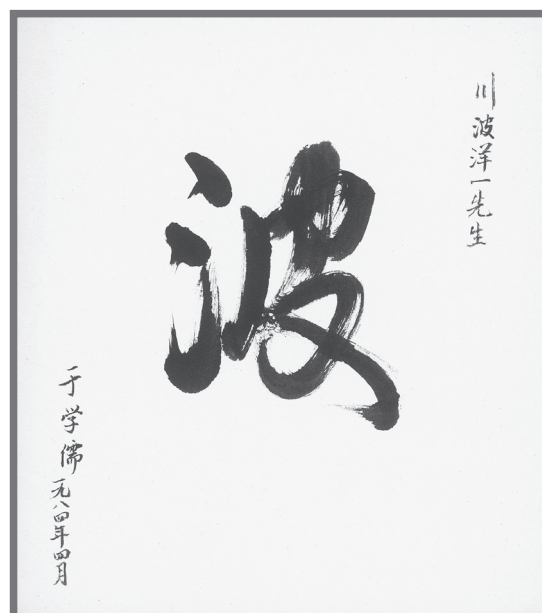 川波洋一先生
波
于学儒
一九八四年四月